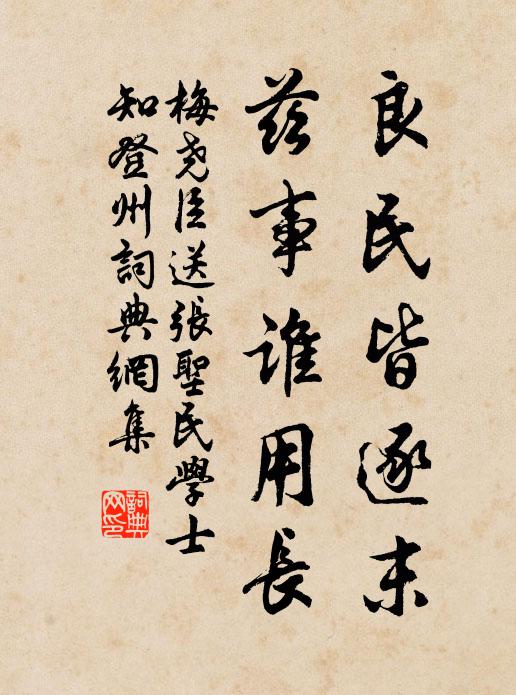 良民皆逐末
茲事誰用長
梅尧臣送張聖民學士
知登州詞典網集
詞典
网印